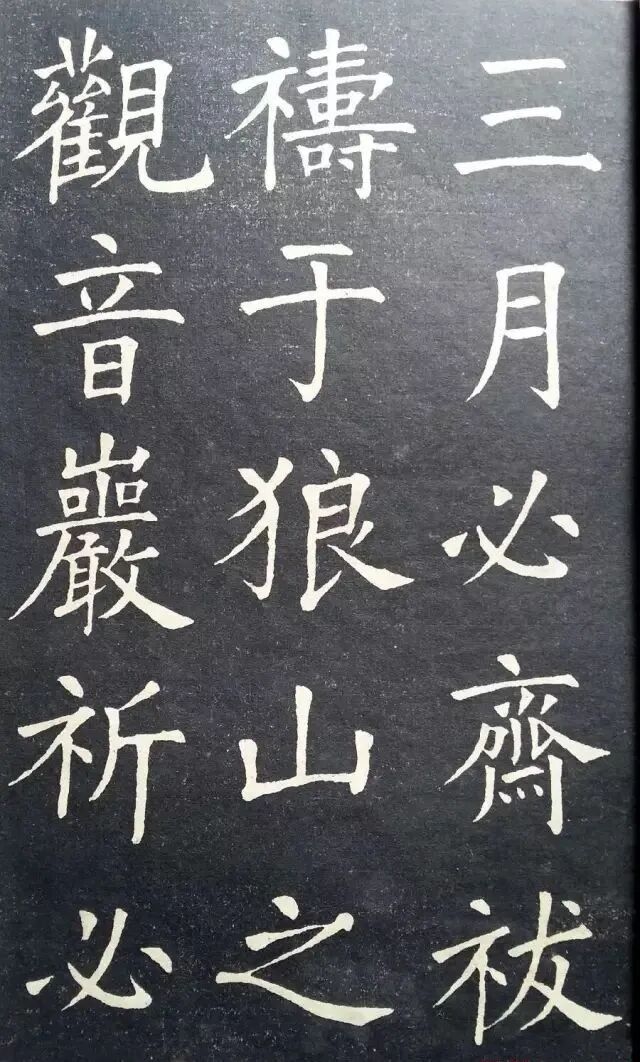 三月必齋祓
禱于狼山之
觀音巖祈必